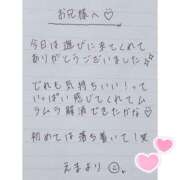 お兄様へ♡
今日は遊びに来てくれて
ありがとうございました
どれも気持ちいいって
いっぱい感じてくれてム
ラムラの解消できたかな♡
初めては落ち着いて!笑
えまより